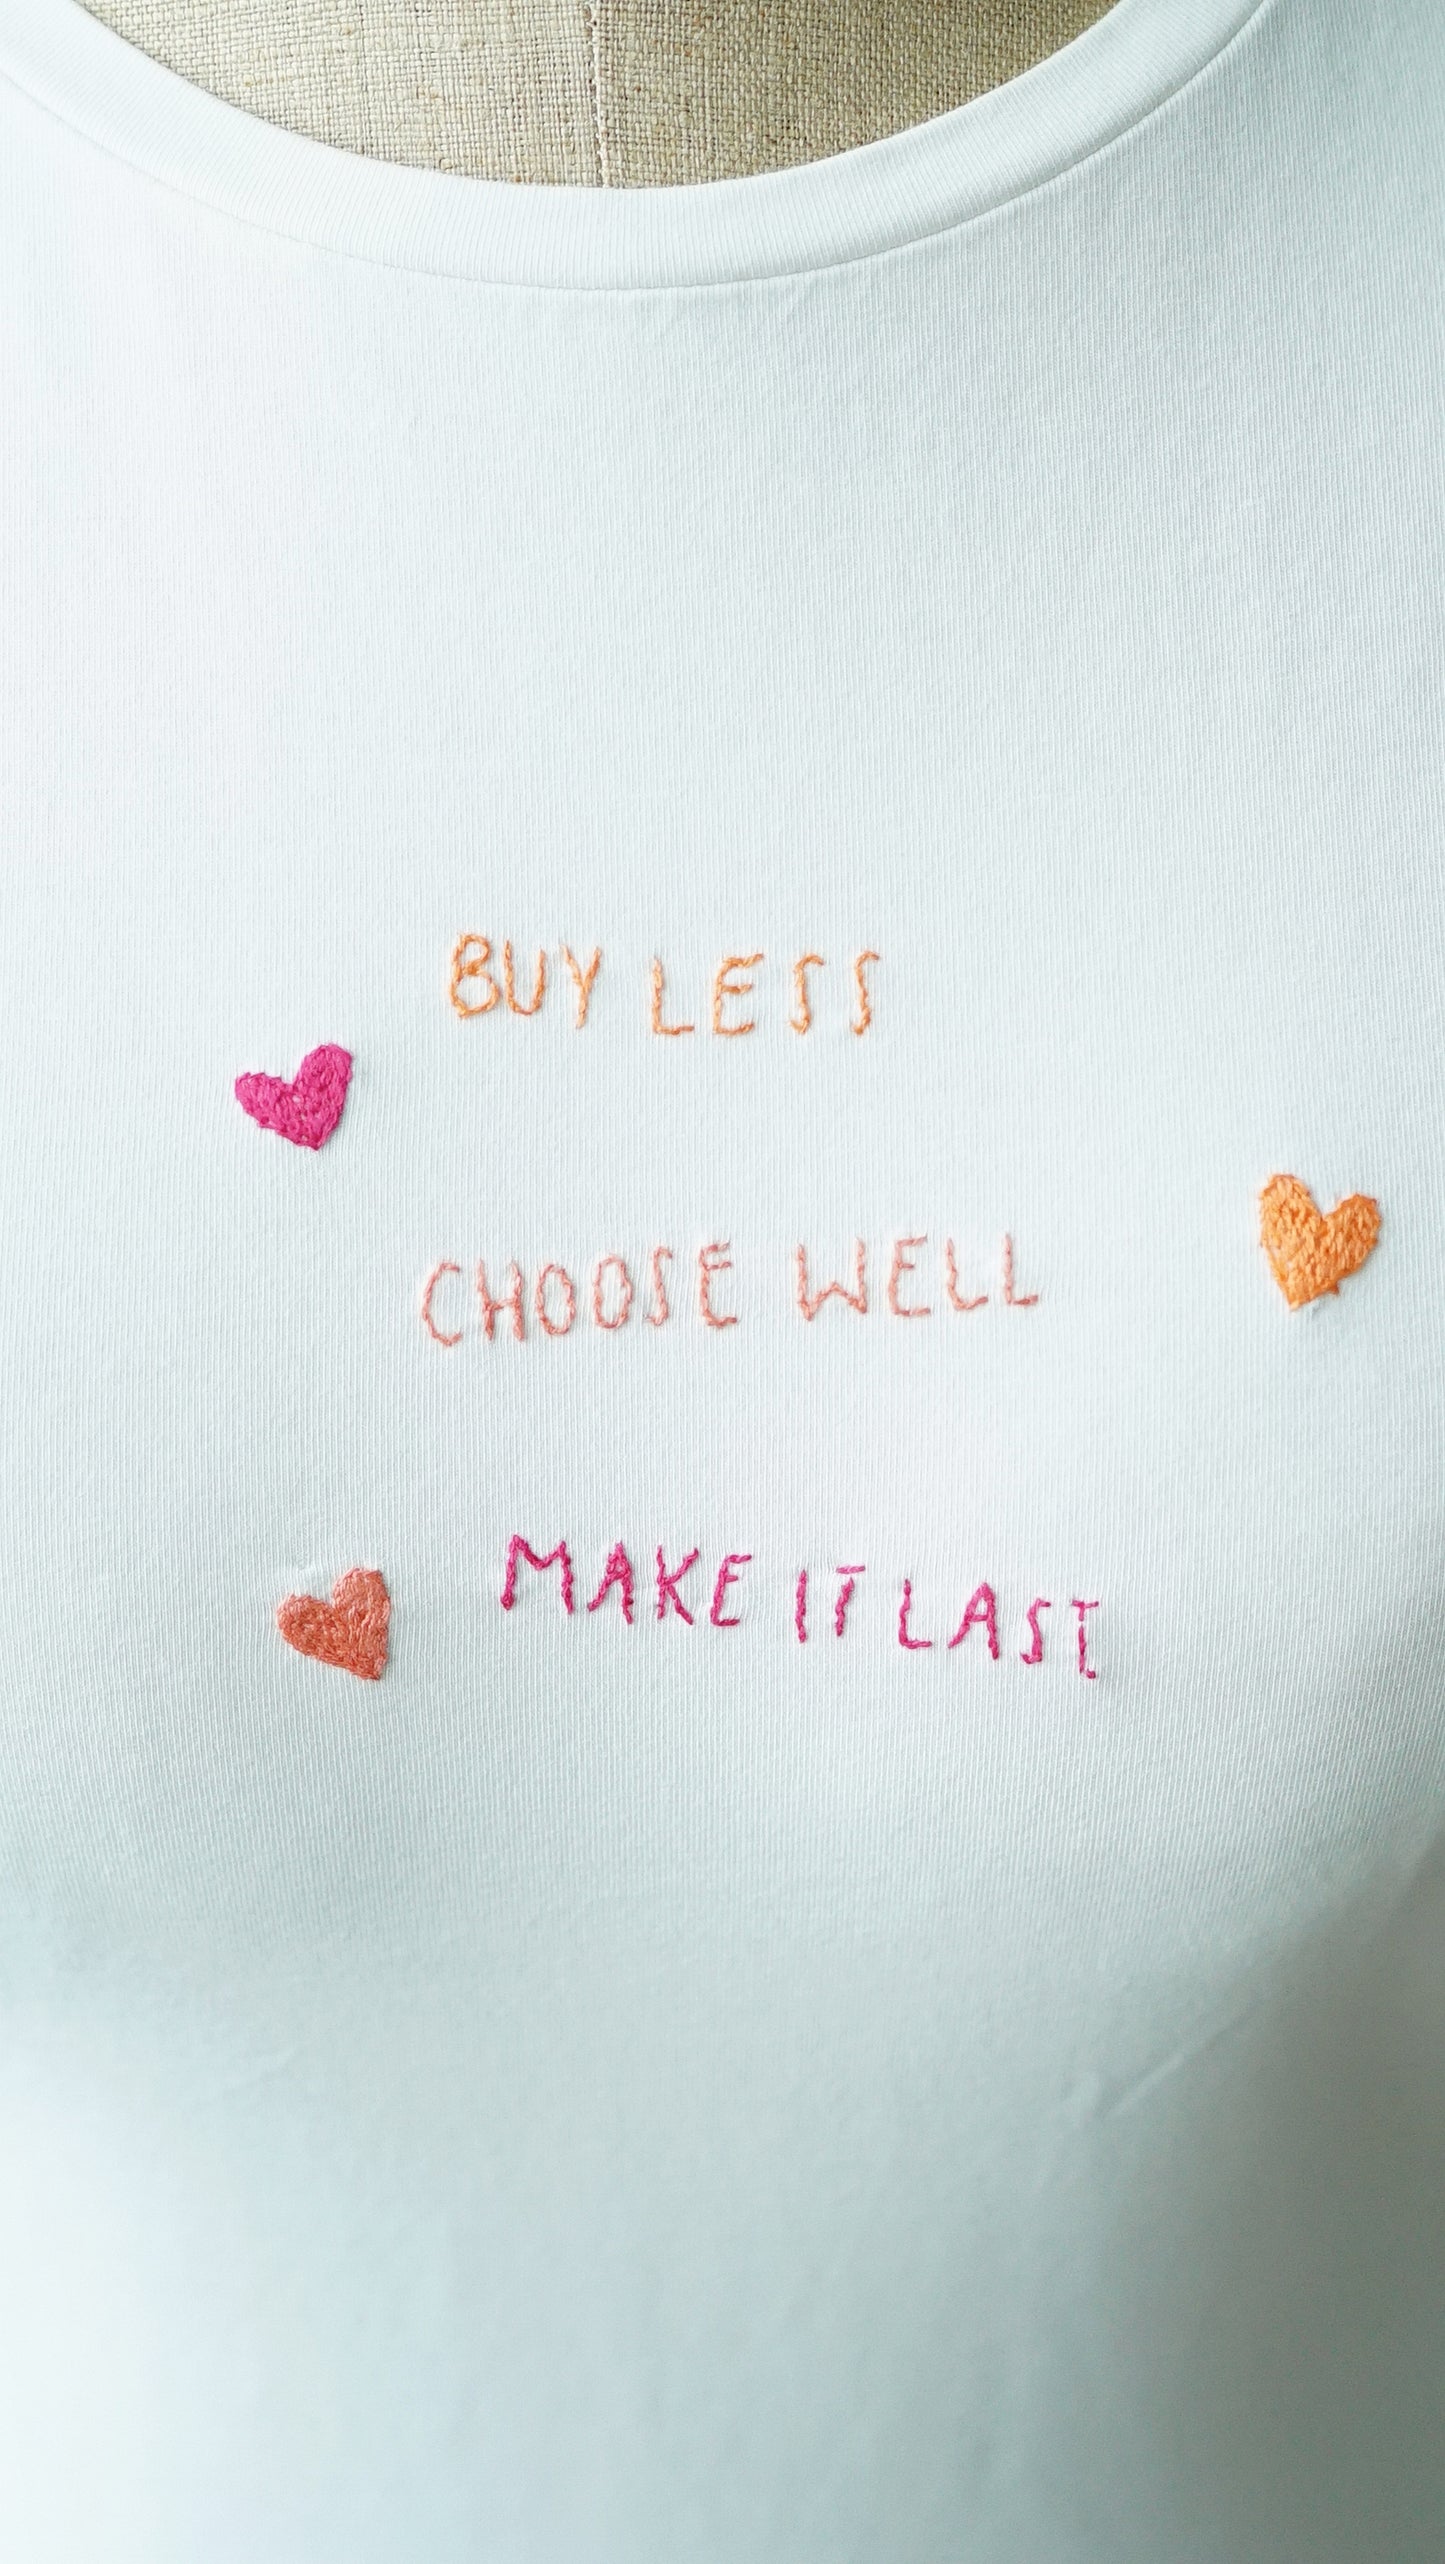 BUY LESS
CHOOSE WELL
MAKE IT LAST